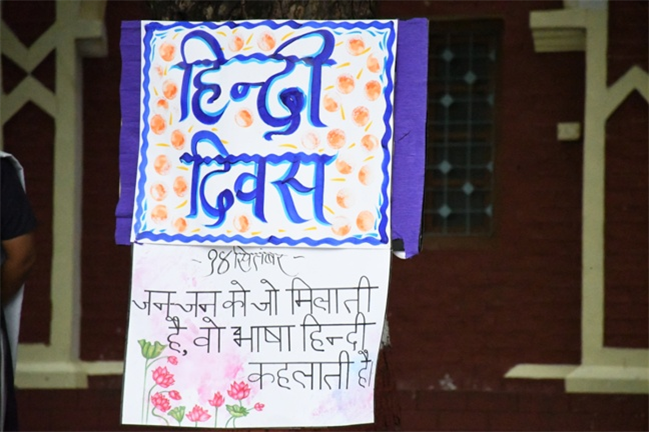 हिन्दी
दिवस
-१४ सितम्बर-
जन-जन को जो मिलाती
है, वो भाषा हिन्दी
कहलाती है।